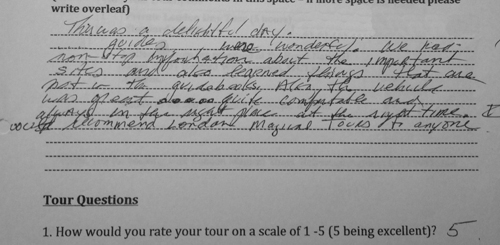 your comments in this space – if more space is needed please
write overleaf)
This was a delightful day.
guides were wonderful. We had
non stop information about the important
sites and also learned things that are
not in the guidebooks. Also, the vehicle
was great quite comfortable and
always in the right place at the right time. I
would recommend London Magical Tours to anyone
Tour Questions
1. How would you rate your tour on a scale of 1 -5 (5 being excellent)? 5